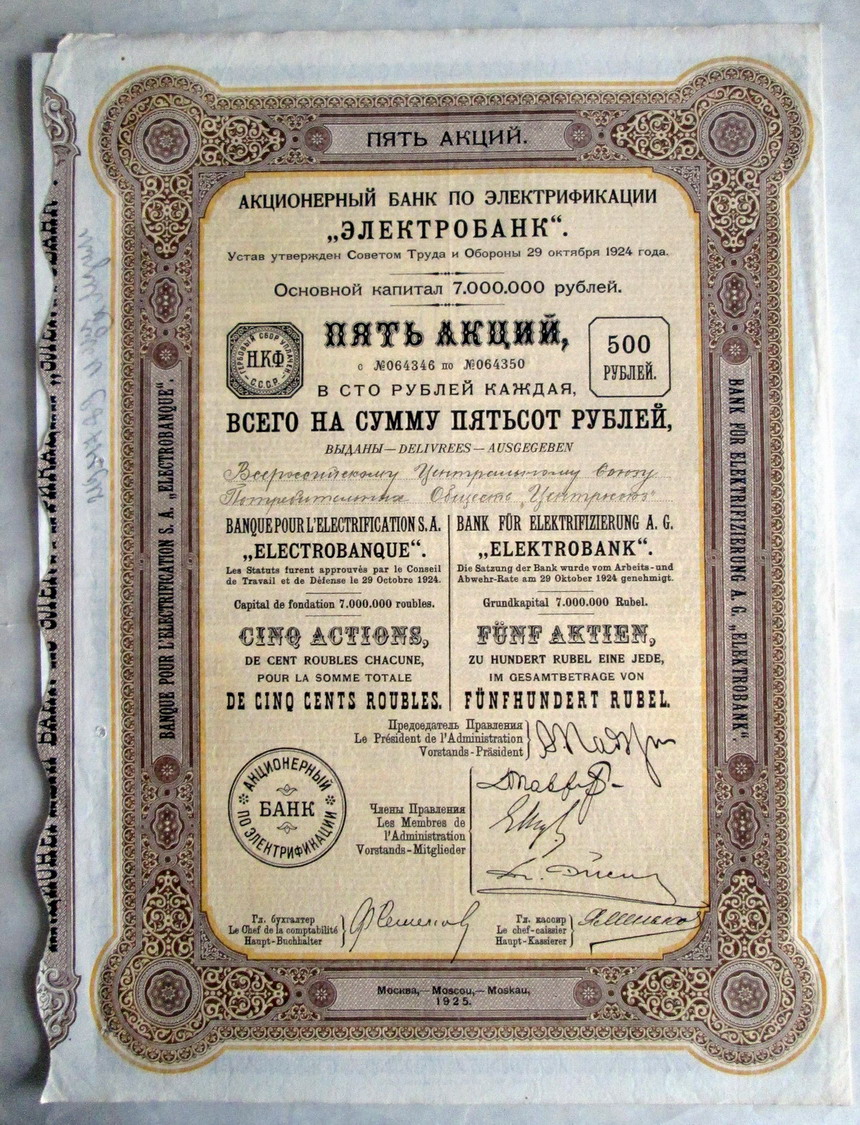 ПЯТЬ АКЦИЙ.
АКЦИОНЕРНЫЙ БАНК ПО ЭЛЕКТРИФИКАЦИИ
„ЭЛЕКТРОБАНК“.
Устав утвержден Советом Труда и Обороны 29 октября 1924 года.
Основной капитал 7.000.000 рублей.
ГЕРБОВЫЙ СБОР УПЛАЧЕН
НКФ
С.С.С.Р.
ПЯТЬ АКЦИЙ,
с №064346 по №064350
В СТО РУБЛЕЙ КАЖДАЯ,
500
РУБЛЕЙ.
ВСЕГО НА СУММУ ПЯТЬСОТ РУБЛЕЙ,
ВЫДАНЫ—DELIVREES—AUSGEGEBEN
Всероссийскому Центральному Союзу
Потребительных Обществ „Центросоюз“
BANQUE POUR L'ELECTRIFICATION S. A.
„ELECTROBANQUE“.
Les Statuts furent approuvés par le Conseil
de Travail et de Défense le 29 Octobre 1924.
Capital de fondation 7.000.000 roubles.
CINQ ACTIONS,
DE CENT ROUBLES CHACUNE,
POUR LA SOMME TOTALE
DE CINQ CENTS ROUBLES.
BANK FÜR ELEKTRIFIZIERUNG A. G.
„ELEKTROBANK“.
Die Satzung der Bank wurde vom Arbeits-und
Abwehr-Rate am 29 Oktober 1924 genehmigt.
Grundkapital 7.000.000 Rubel.
FÜNF AKTIEN,
ZU HUNDERT RUBEL EINE JEDE,
IM GESAMTBETRAGE VON
FÜNFHUNDERT RUBEL.
Председатель Правления
Le Président de l'Administration
Vorstands-Präsident
АКЦИОНЕРНЫЙ
БАНК
ПО ЭЛЕКТРИФИКАЦИИ
Члены Правления
Les Membres de
l'Administration
Vorstands-Mitglieder
Гл. бухгалтер
Le Chef de la comptabilité
Haupt-Buchhalter
Гл. кассир
Le chef-caissier
Haupt-Kassierer
Москва,—Moscou,—Moskau,
1925.
BANQUE POUR L'ELECTRIFICATION S. A. „ELECTROBANQUE“.
BANK FÜR ELEKTRIFIZIERUNG A. G. „ELEKTROBANK“.